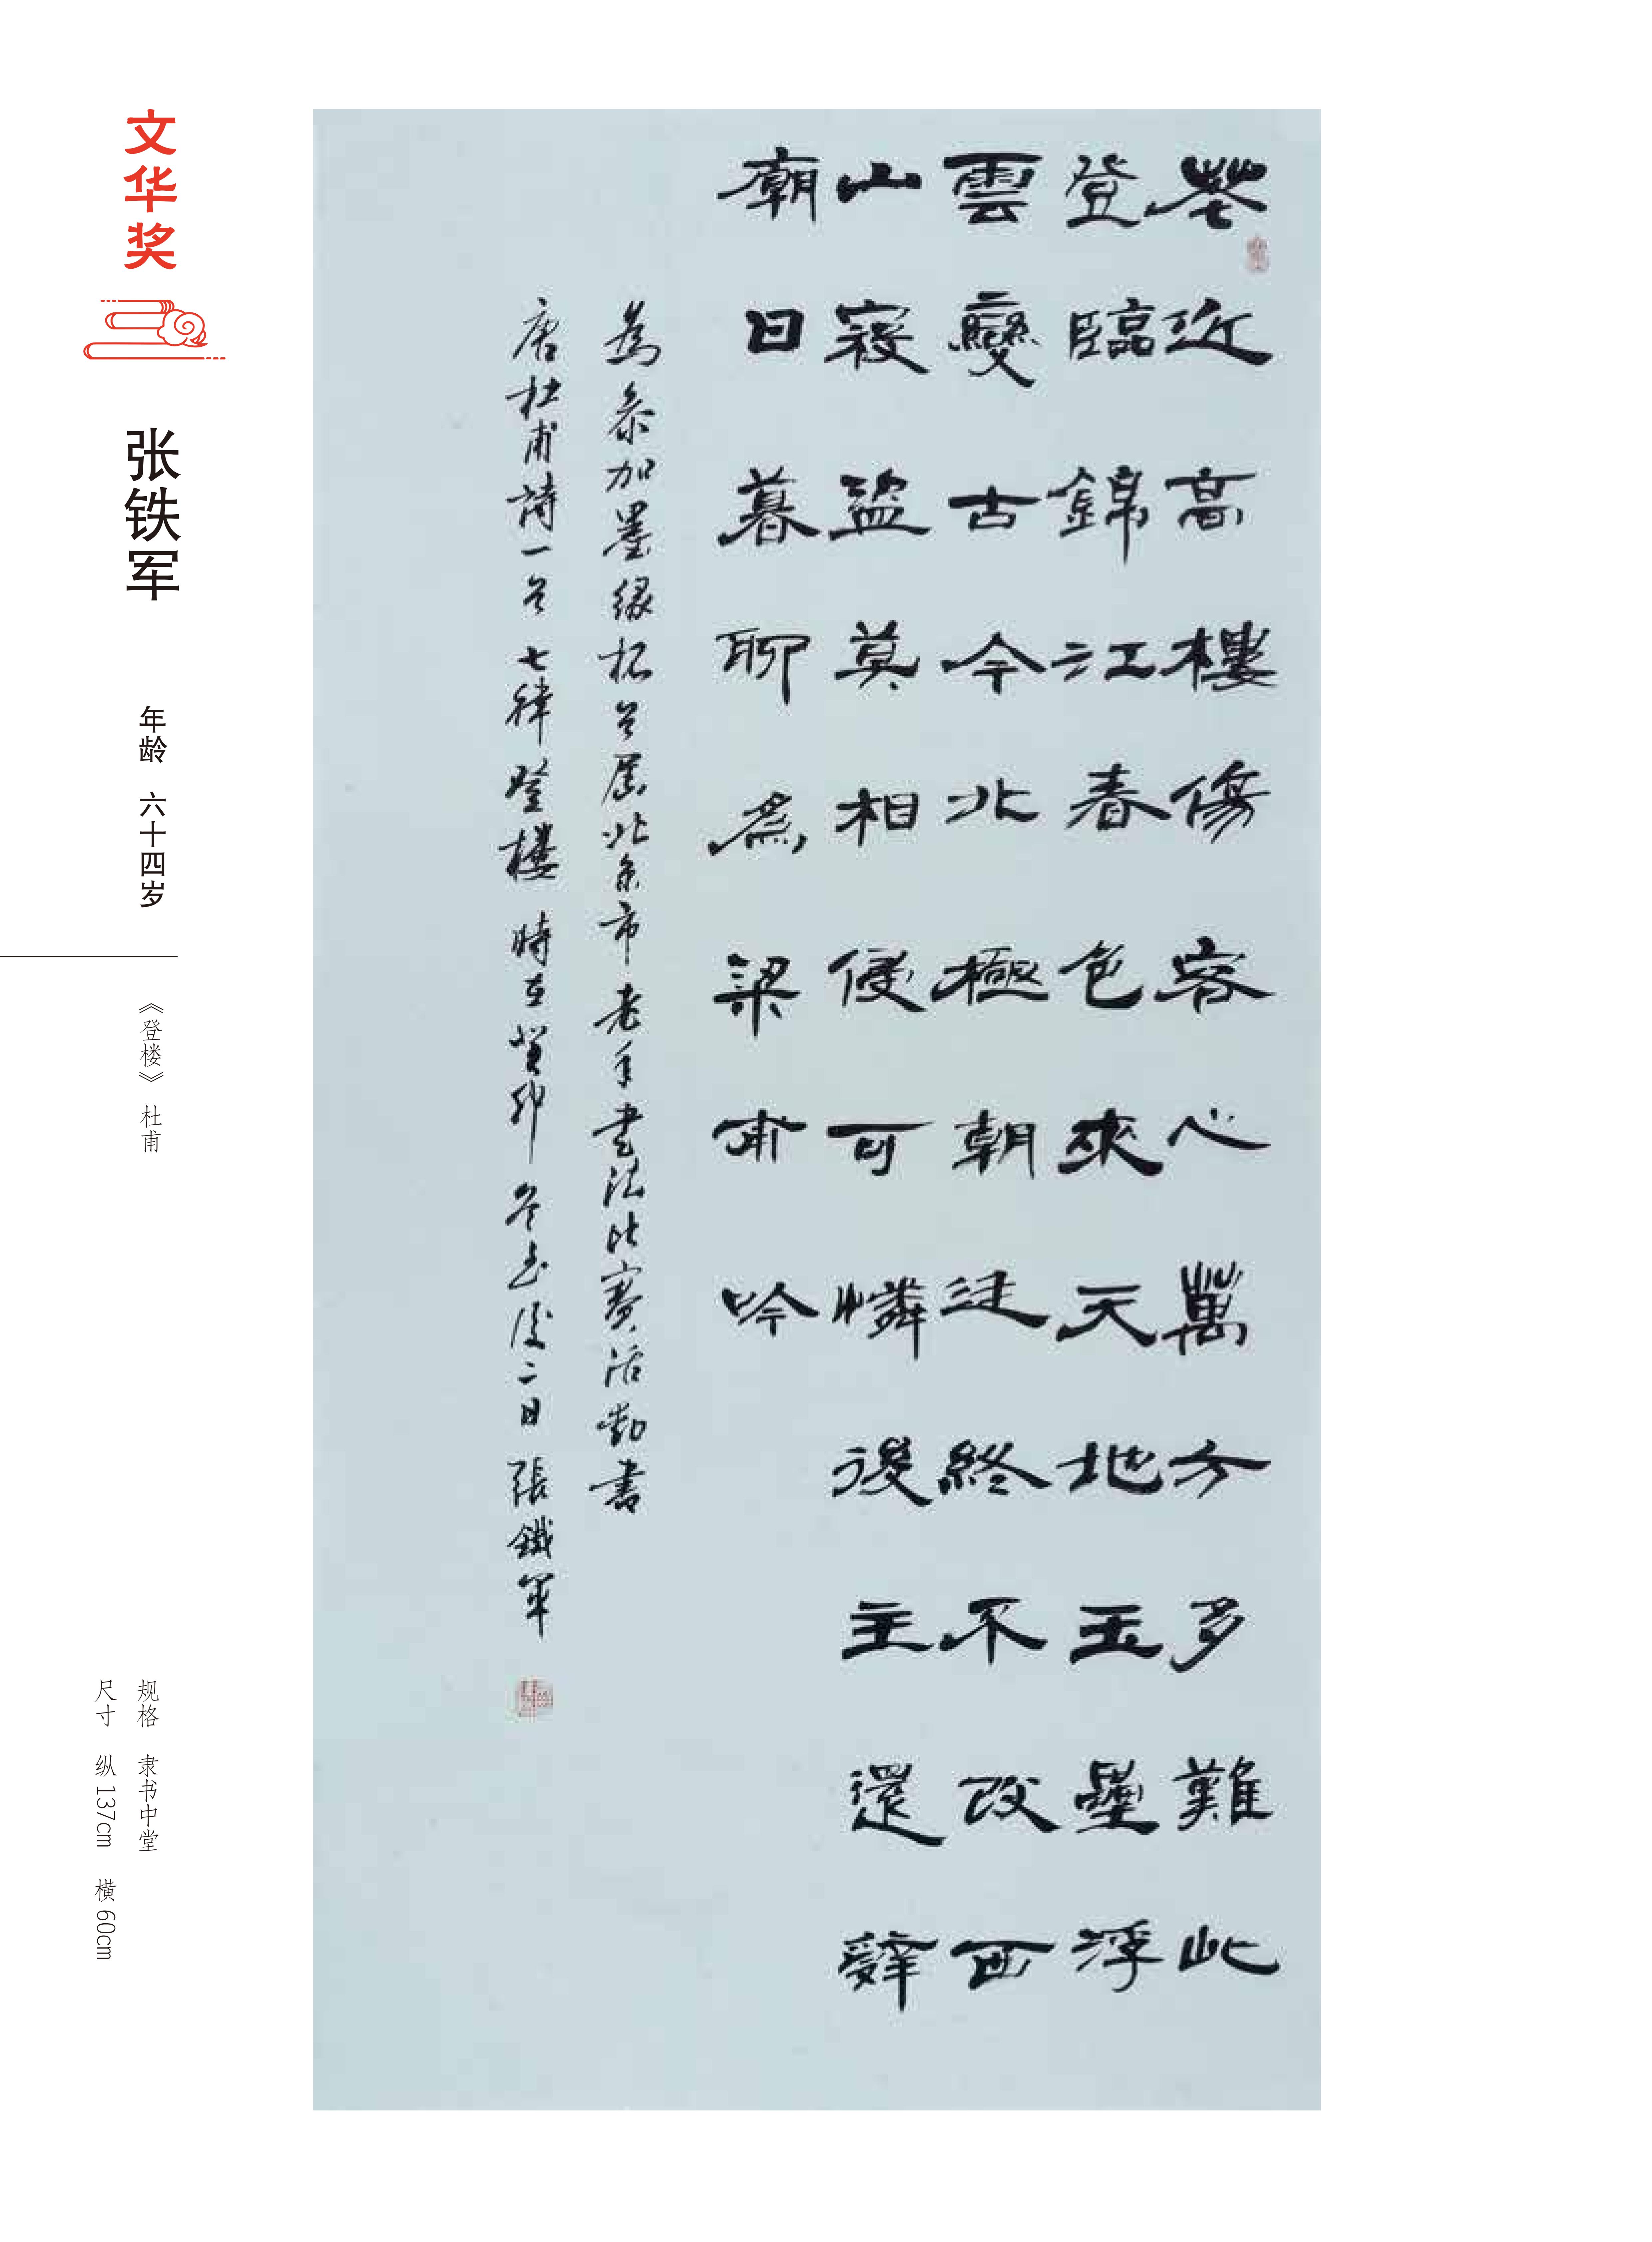 文华奖
张铁军
年龄 六十四岁
《登楼》 杜甫
规格 隶书中堂
尺寸 纵137cm 横60cm
花近高樓傷客心萬方多難此
登臨錦江春色來天地玉壘浮
雲變古今北極朝廷終不改西
山寇盜莫相侵可憐後主還辭
廟日暮聊爲梁甫吟
為参加墨缘杯首届北京市老年書法比賽活動書
唐杜甫詩一首七律登樓 時在癸卯冬至後二日 張鐵軍